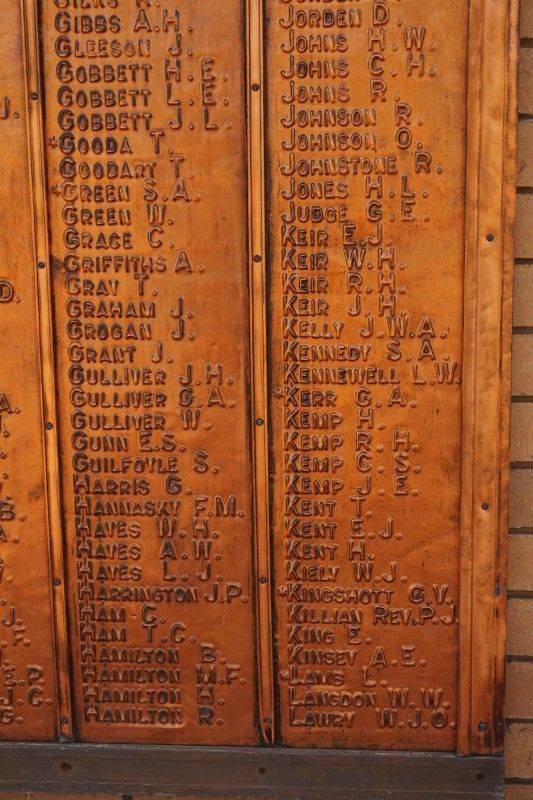 J.
D.
A.
J.
B.
A.
J.
F.
E.P.
J.C.
G.
GIBBS A.H.
GLEESON J.
GOBBETT H.E.
GOBBETT L.E.
GOBBETT J.L.
*GOODA T.
GOODART T.
*GREEN S.A.
GREEN W.
GRACE C.
*GRIFFITHS A.
GRAY T.
GRAHAM J.
GROGAN J.
GRANT J.
GULLIVER J.H.
GULLIVER G.A.
GULLIVER W.
GUNN E.S.
GUILFOYLE S.
HARRIS G.
HANNASKY F.M.
HAYES W.H.
HAYES A.W.
HAYES L.J.
HARRINGTON J.P.
HAM C.
HAM T.C.
HAMILTON B.
HAMILTON M.F.
HAMILTON H.
HAMILTON R.
JORDEN D.
JOHNS H.W.
JOHNS C.H.
JOHNS R.
JOHNSON R.
JOHNSON O.
JOHNSTONE R.
JONES H.L.
JUDGE G.E.
KEIR E.J.
KEIR W.H.
KEIR R.H.
KEIR J.H.
KELLY J.W.A.
KENNEDY S.A.
KENNEWELL L.W.
*KERR G.A.
KEMP H.
KEMP R.H.
KEMP C.S.
KEMP J.E.
KENT T.
KENT E.J.
KENT H.
KIELY W.J.
*KINGSHOTT G.V.
KILLIAN REV.P.J.
KING E.
KINSEY A.E.
*LAMB L.
LANGDON W.W.
LAWRY W.J.O.